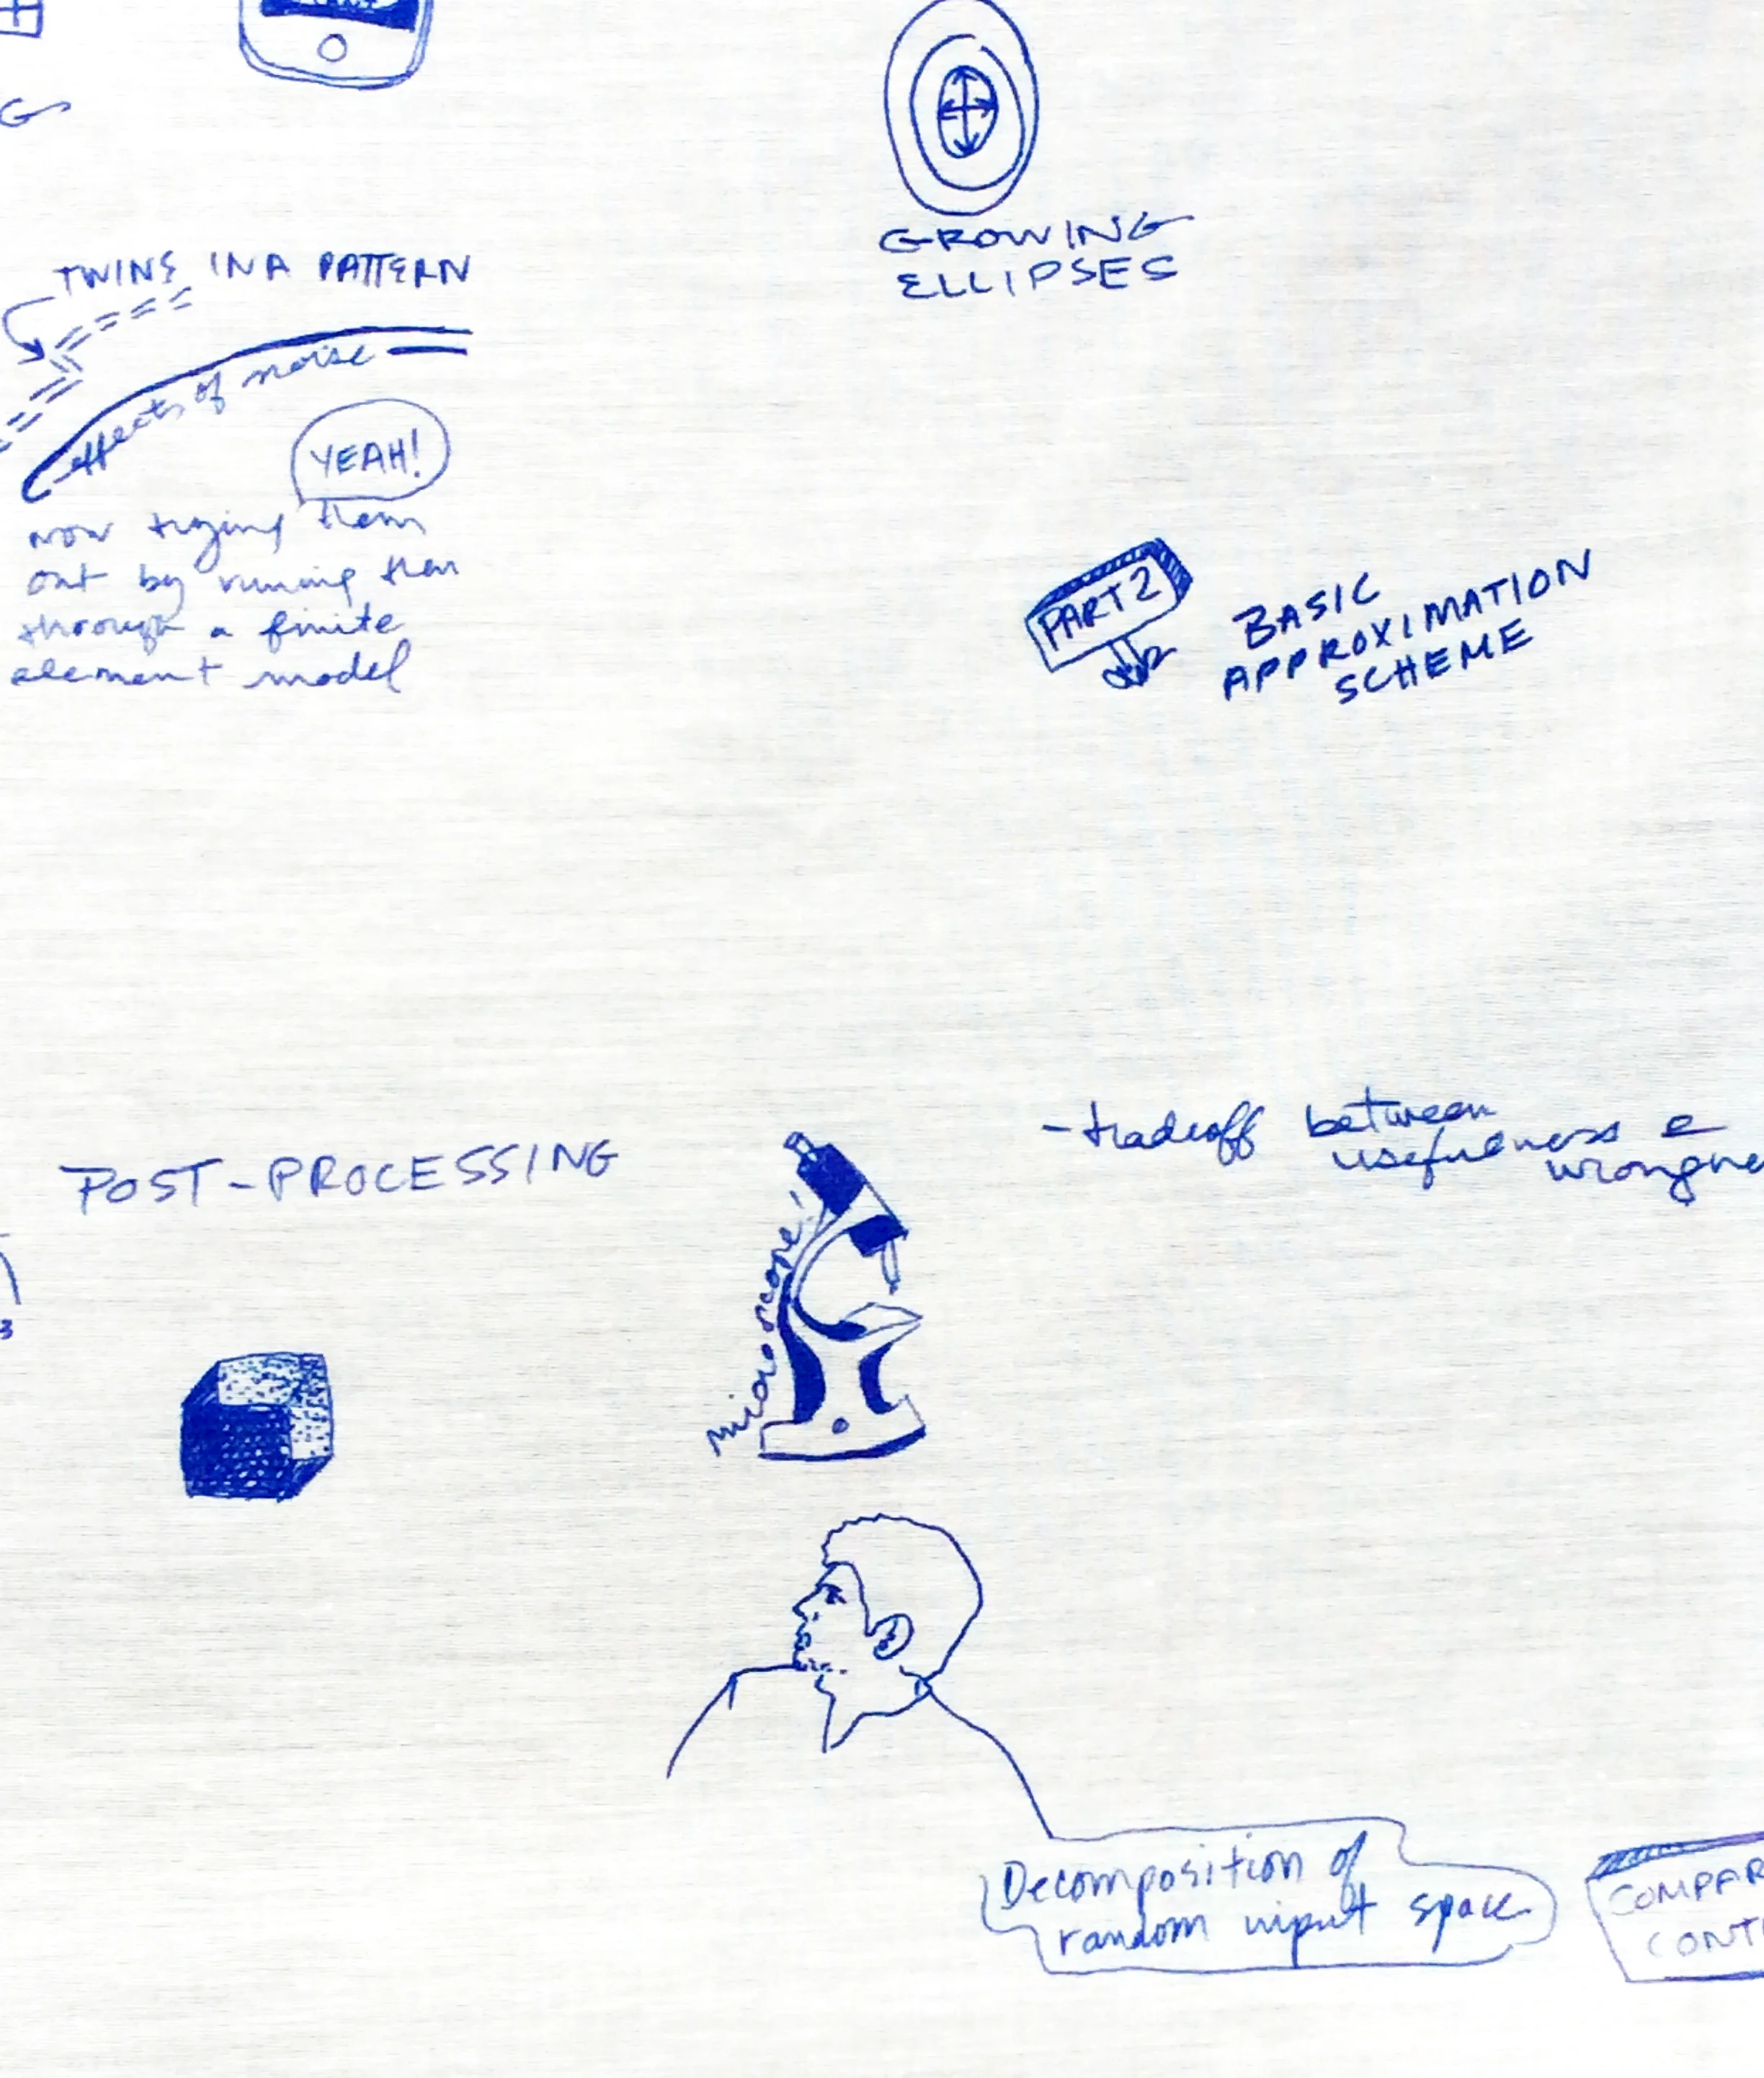 G
GROWING
ELLIPSES
TWINS IN A PATTERN
effects of noise
YEAH!
now trying them
out by running them
through a finite
element model
PART 2
BASIC
APPROXIMATION
SCHEME
- tradeoff between
usefulness &
wrongne
POST-PROCESSING
microscope!
3
Decomposition of
random input space
COMPAR
CONT